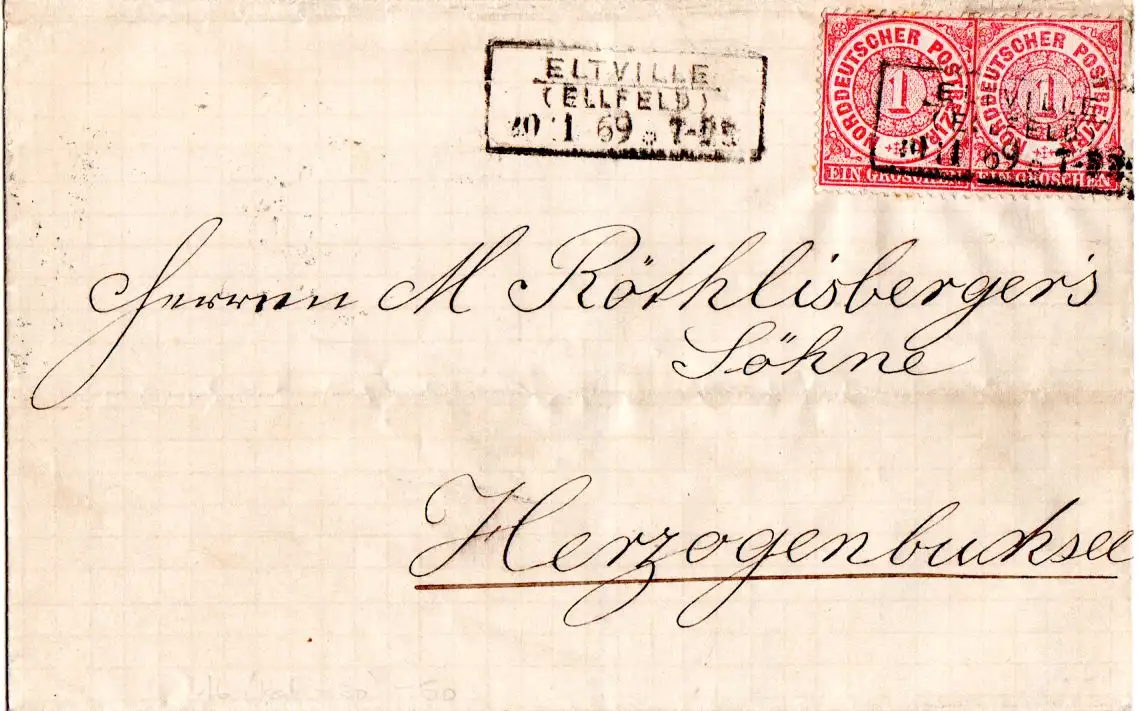 ELTVILLE
(ELLFELD)
20 1 69 7-
NORDDEUTSCHER POSTBEZIRK
1
EIN GROSCHEN
NORDDEUTSCHER POSTBEZIRK
1
EIN GROSCHEN
ELTVILLE
(ELLFELD)
20 1 69 7-
Herren M Röthlisberger's
Söhne
Herzogenbuchsee